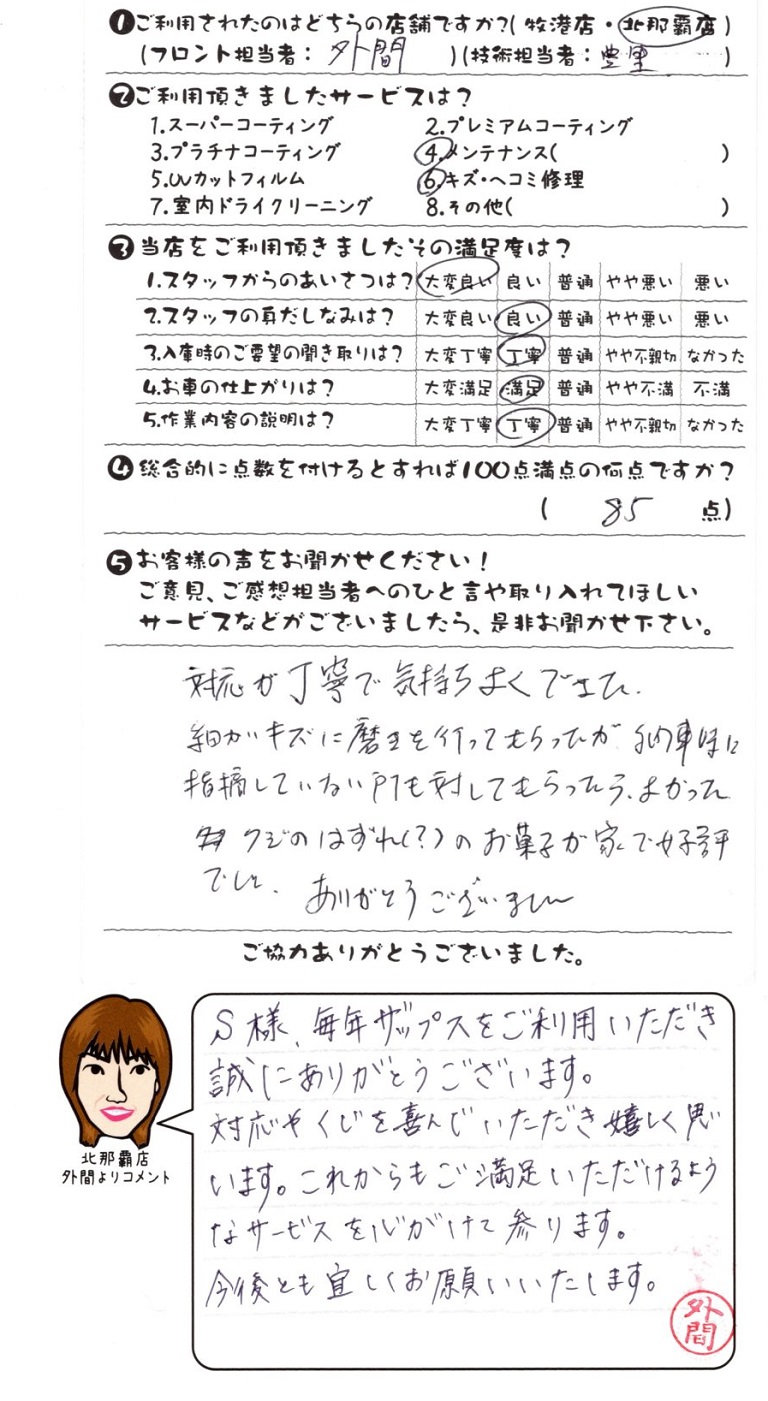 ❶ご利用されたのはどちらの店舗ですか?(牧港店・北那覇店)
(フロント担当者: 外間 )(技術担当者: 豊里 )
❷ご利用頂きましたサービスは?
1.スーパーコーティング 2.プレミアムコーティング
3.プラチナコーティング 4.メンテナンス( )
5.UVカットフィルム 6.キズ・ヘコミ修理
7.室内ドライクリーニング 8.その他( )
❸当店をご利用頂きましたその満足度は?
1.スタッフからのあいさつは? 大変良い 良い 普通 やや悪い 悪い
2.スタッフの身だしなみは? 大変良い 良い 普通 やや悪い 悪い
3.入庫時のご要望の聞き取りは? 大変丁寧 丁寧 普通 やや不親切 なかった
4.お車の仕上がりは? 大変満足 満足 普通 やや不満 不満
5.作業内容の説明は? 大変丁寧 丁寧 普通 やや不親切 なかった
❹総合的に点数を付けるとすれば100点満点の何点ですか?
( 85 点)
❺お客様の声をお聞かせください!
ご意見、ご感想担当者へのひと言や取り入れてほしい
サービスなどがございましたら、是非お聞かせ下さい。
対応が丁寧で気持ちよくできた.
細かいキズに磨きを行ってもらったが 納車時に
指摘していない所も対してもらったう、よかった
クジのはずれ(?)のお菓子が家で好評
でした. ありがとうございました
ご協力ありがとうございました。
S様、毎年ザップスをご利用いただき
誠にありがとうございます。
対応やくじを喜んでいただき嬉しく思
います。これからもご満足いただけるよう
なサービスを心がけて参ります。
今後とも宜しくお願いいたします。
北那覇店
外間よりコメント
外間